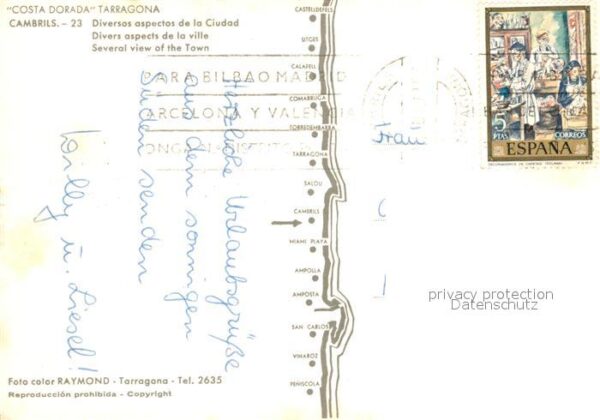 "COSTA DORADA" TARRAGONA
CAMBRILS. – 23 Diversos aspectos de la Ciudad
Divers aspects de la ville
Several view of the Town
PARA BILBAO MADRID
BARCELONA Y VALENCIA
Herzliche Urlaubsgrüße
aus dem sonnigen
Süden senden
Willy u. Liesel!
CASTELLDEFELS
SITGES
CALAFELL
COMARRUGA
TORREDEMBARRA
TARRAGONA
SALOU
CAMBRILS
MIAMI PLAYA
AMPOLLA
AMPOSTA
SAN CARLOS
VINAROZ
PEÑISCOLA
Frau
5
PTAS
CORREOS
ESPAÑA
privacy protection
Datenschutz
Foto color RAYMOND - Tarragona - Tel. 2635
Reproducción prohibida - Copyright